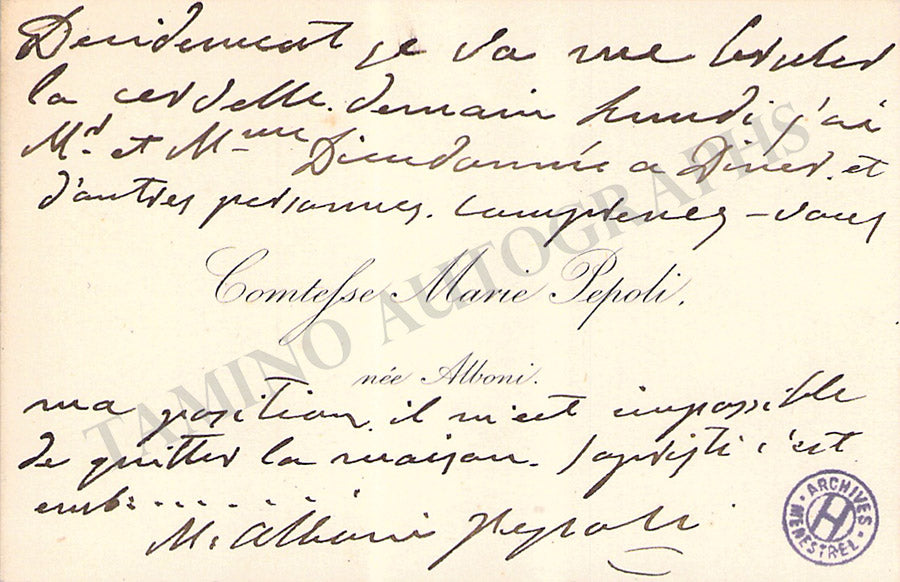 Decidement je va me bruler
la cervelle. demain lundi j'ai
Mr. et Mme Dieudonnée a Diner. et
d'autres personnes. comprenez-vous
Comtesse Marie Pepoli.
née Alboni.
ma position. il m'est impossible
de quitter la maison. Sapristi c'est
emb:.........
M. Alboni Pepoli
TAMINO AUTOGRAPHS
ARCHIVES
H
MENESTREL